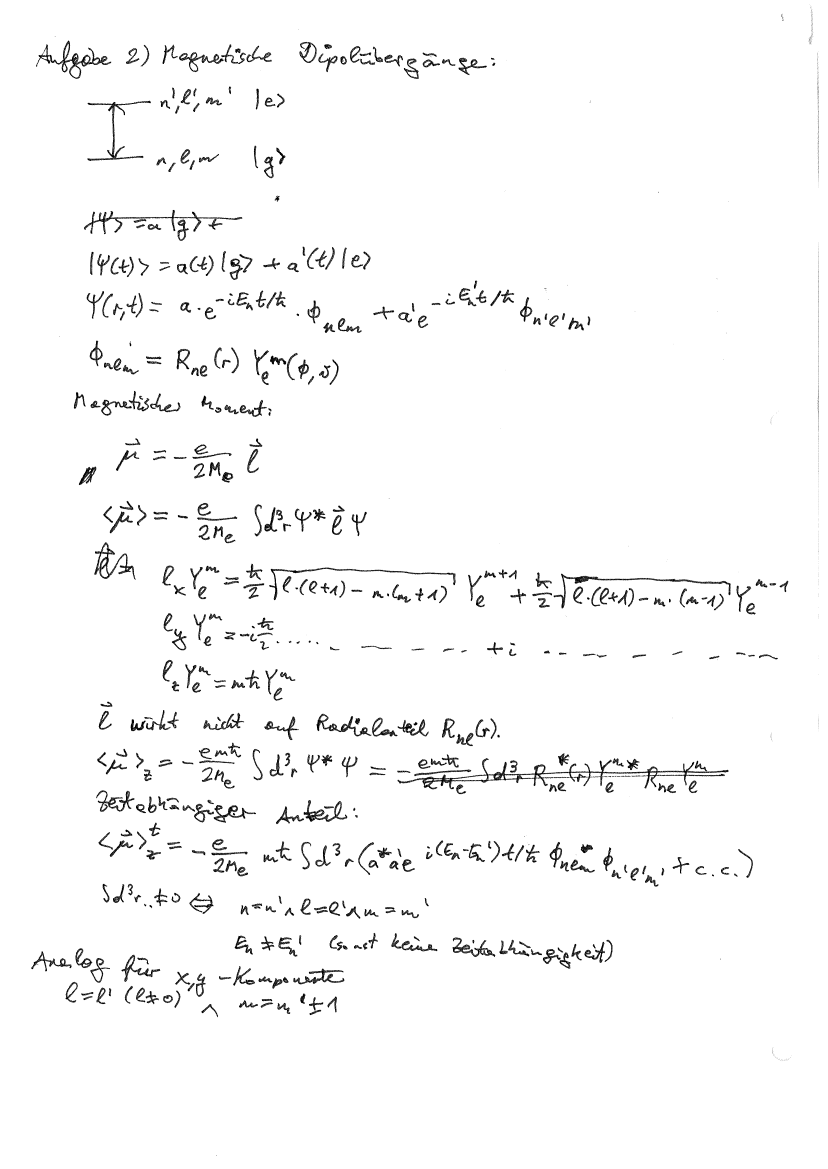 Aufgabe 2) Magnetische Dipolübergänge:
n',l',m' |e>
n,l,m |g>
|Ψ> = a |g> +
|Ψ(t)> = a(t)|g> + a'(t)|e>
Ψ(r,t) = a·e^{-iE_n t/ħ} · ϕ_{nlm} + a'e^{-iE_n' t/ħ} ϕ_{n'l'm'}
ϕ_{nlm} = R_{nl}(r) Y_l^m(ϕ,ϑ)
Magnetisches Moment:
μ⃗ = - e/2M_e l⃗
<μ⃗> = - e/2M_e ∫d³r Ψ* l⃗ Ψ
l_x Y_l^m = ħ/2 √(l·(l+1) - m·(m+1)) Y_l^{m+1} + ħ/2 √(l·(l+1) - m·(m-1)) Y_l^{m-1}
l_y Y_l^m = -i ħ/2 ..... - - - - - - +i -- - - - - - ---
l_z Y_l^m = mħ Y_l^m
l⃗ wirkt nicht auf Radialanteil R_{nl}(r).
<μ⃗>_z = - emħ/2M_e ∫d³r Ψ* Ψ = - emħ/2M_e ∫d³r R_{nl}*(r) Y_l^{m*} R_{nl} Y_l^m
Zeitabhängiger Anteil:
<μ⃗>_z^t = - e/2M_e mħ ∫d³r (a*a'e^{i(E_n-E_n')t/ħ} ϕ_{nlm}* ϕ_{n'l'm'} + c.c.)
∫d³r.. ≠0 ⇔ n=n' ∧ l=l' ∧ m=m'
E_n ≠ E_n' (sonst keine Zeitabhängigkeit)
Analog für x,y -Komponente
l=l' (l≠0) ∧ m=m'±1